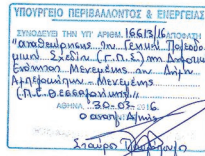 ΥΠΟΥΡΓΕΙΟ ΠΕΡΙΒΑΛΛΟΝΤΟΣ & ΕΝΕΡΓΕΙΑΣ
ΣΥΝΟΔΕΥΕΙ ΤΗΝ ΥΠ' ΑΡΙΘΜ. 16613/16 ΑΠΟΦΑΣΗ
"αναθεώρησης του Γενικού Πολεοδο
μικού Σχεδίου (Γ.Π.Σ.) της Δημοτικής
Ενότητας Μενεμένης του Δήμου
Αμπελοκήπων - Μενεμένης
(Π.Ε. Θεσσαλονίκης)"
ΑΘΗΝΑ 30-03-2016